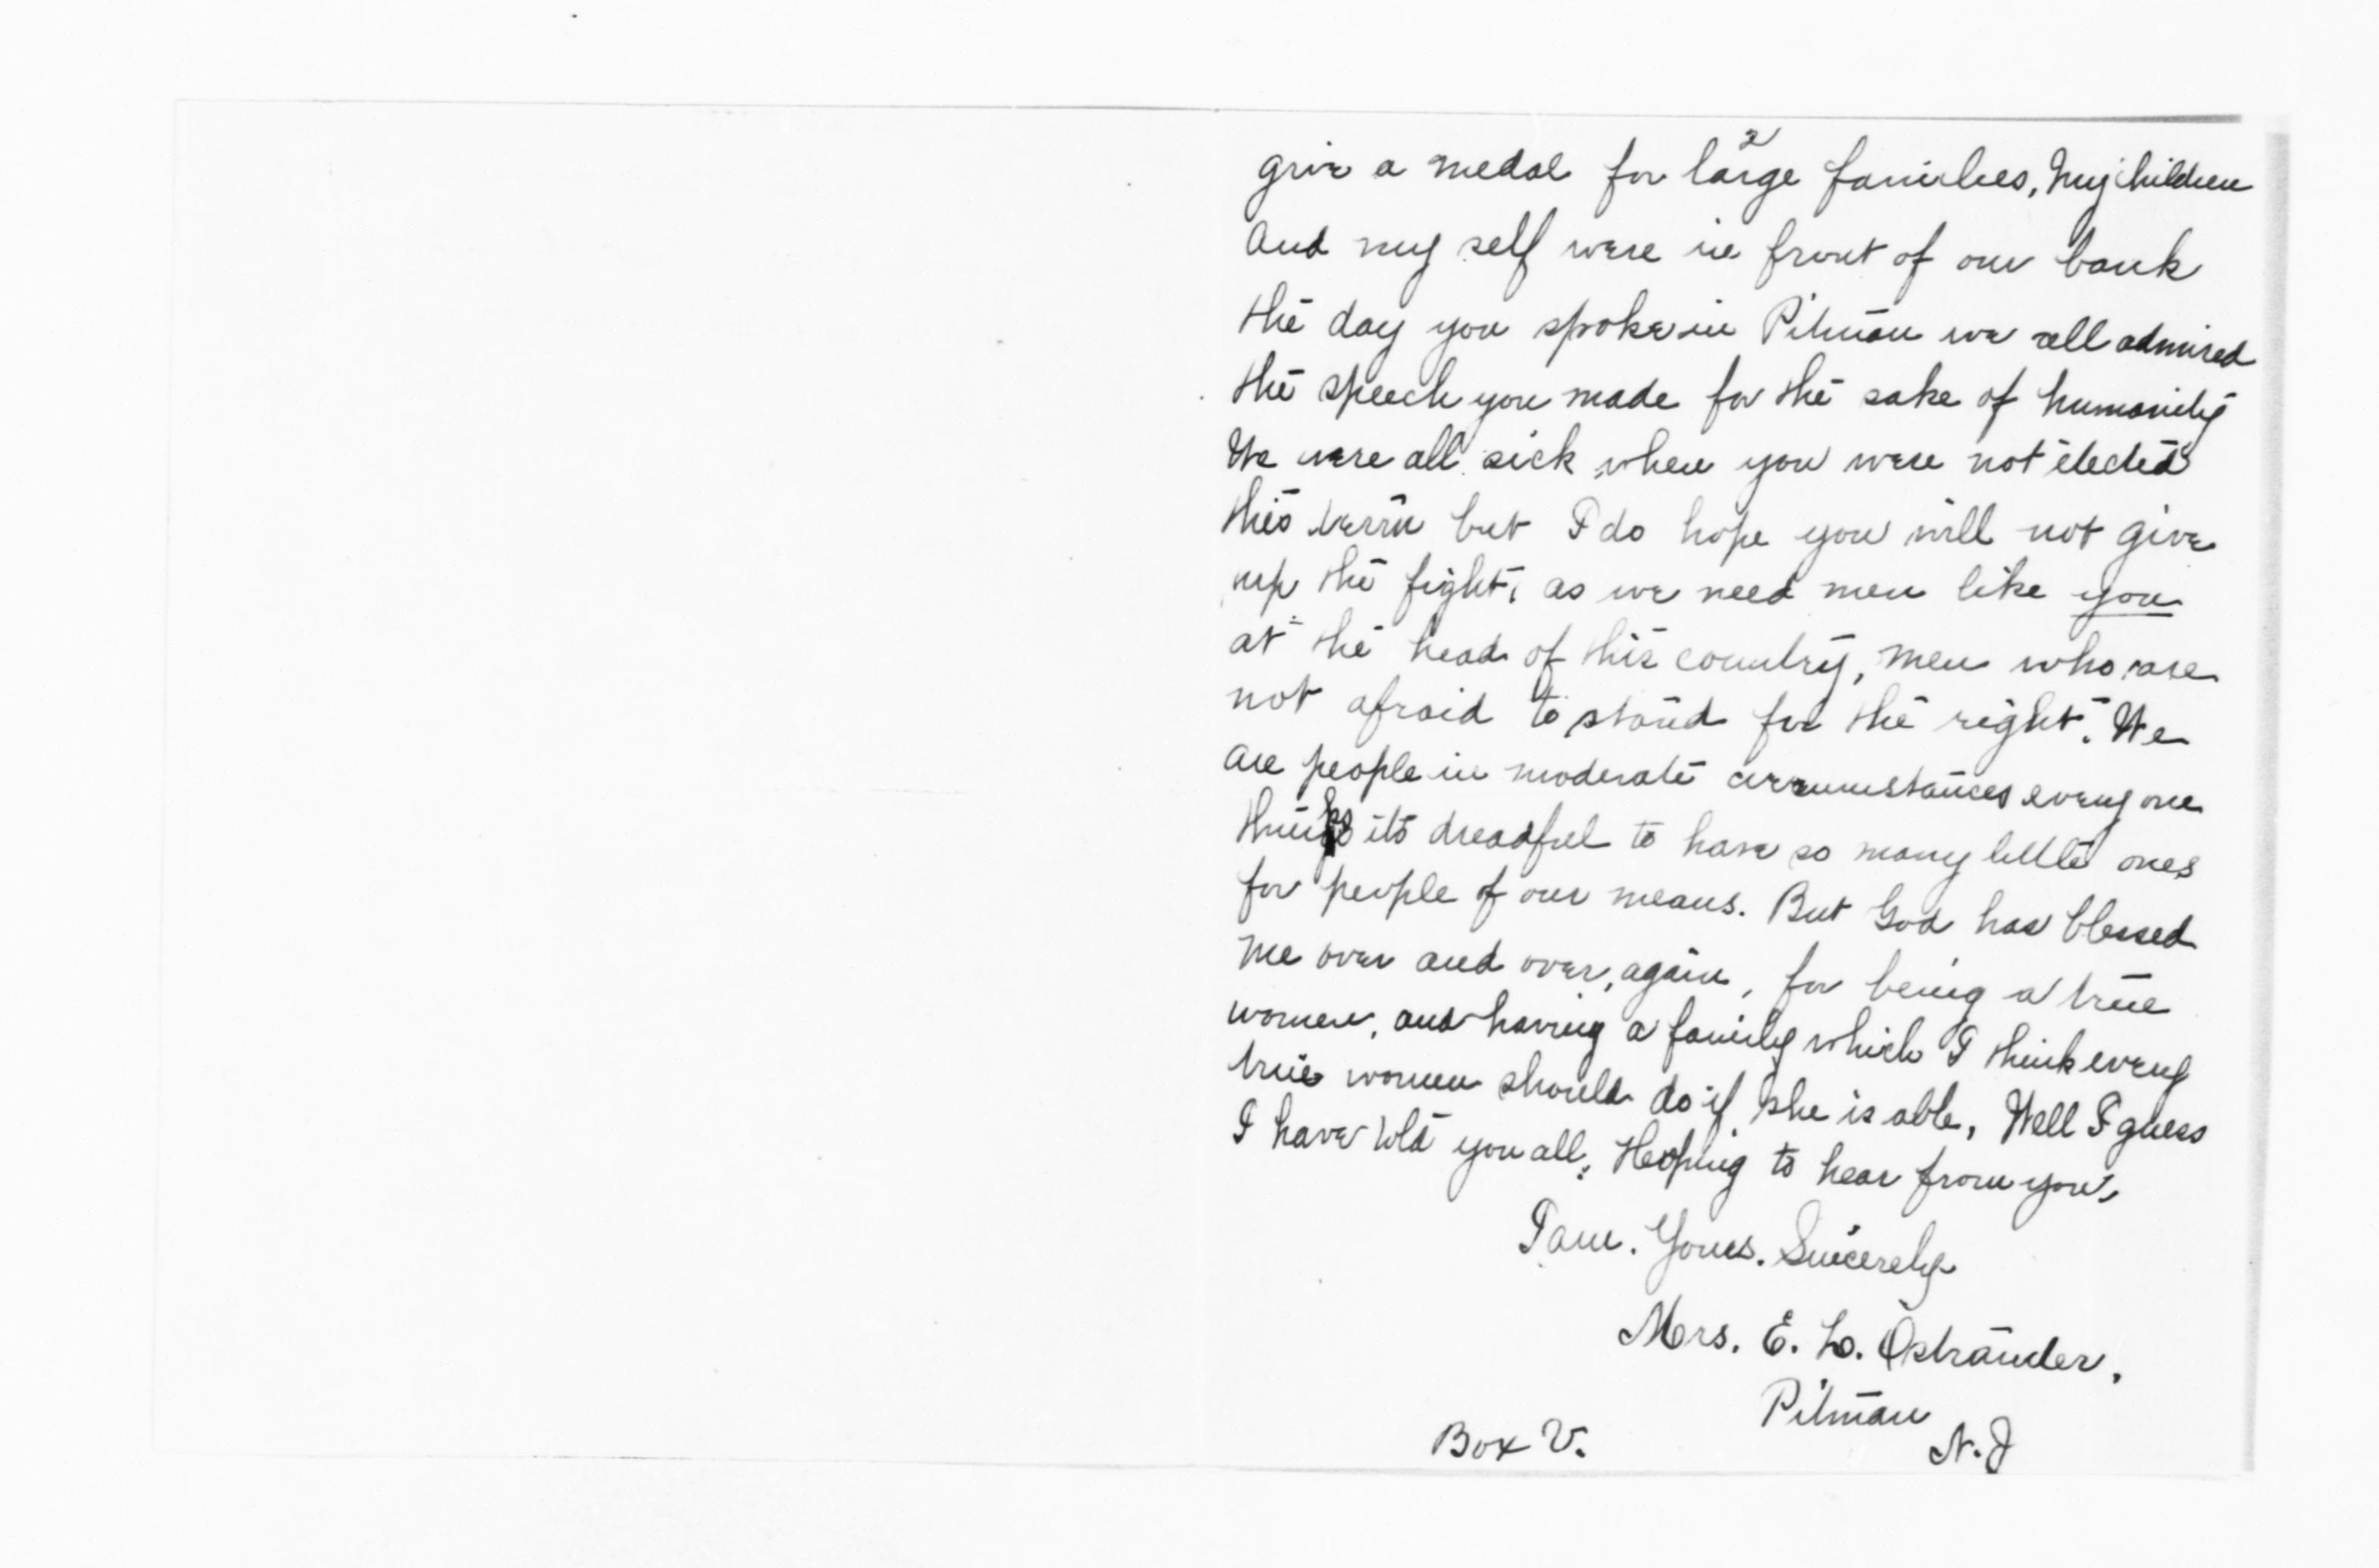 2
give a medal for large families, My children
and my self were in front of our bank
the day you spoke in Pitman we all admired
the speech you made for the sake of humanity
We were all sick when you were not elected
this term but I do hope you will not give
up the fight, as we need men like you
at the head of this country, men who are
not afraid to stand for the right. We
are people in moderate circumstances every one
thinks its dreadful to have so many little ones
for people of our means. But God has blessed
me over and over, again, for being a true
women, and having a family which I think every
true women should do if she is able, Well I guess
I have told you all. Hoping to hear from you,
I am. Yours. Sincerely
Mrs. E. L. Ostrander,
Pitman
Box V. N. J